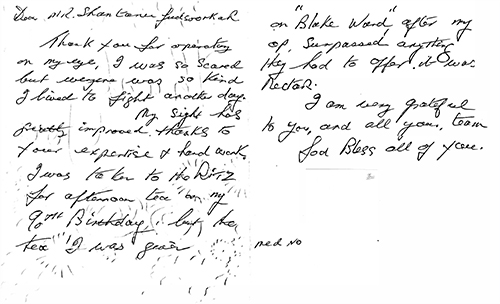 Dear MR. Shantanu Judsworkar
Thank you for operating
on my eye, I was so scared
but everyone was so kind
I lived to fight another day.
My sight has
greatly improved. thanks to
your expertise & hard work
I was taken to the RITZ
for afternoon tea on my
90TH Birthday, but the
tea I was given
on "Blake Ward" after my
op. Surpassed anything
they had to offer. it was
Nectar.
I am very grateful
to you, and all your team
God Bless all of you.
med NO